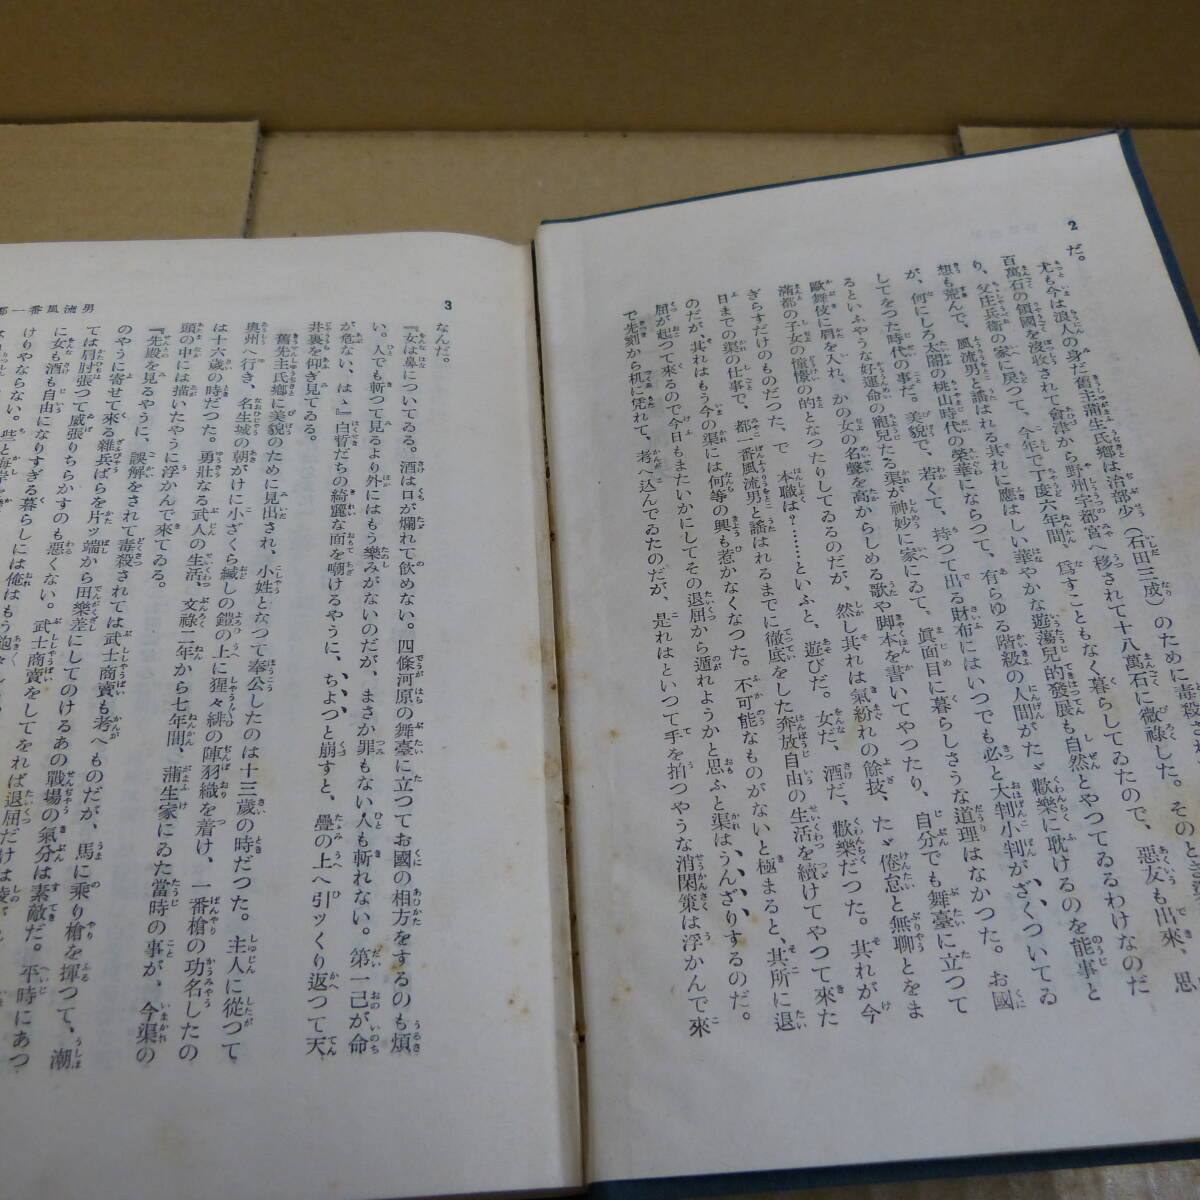 2
だ。
尤も今は浪人の身だ舊主蒲生氏郷は治部少（石田三成）のために毒殺さ
百萬石の領國を沒收されて會津から野州宇都宮へ移されて十八萬石に微祿した。そのとき
り、父庄兵衞の家に戻つて、今年で丁度六年間、爲すこともなく暮らしてゐたので、惡友も出來、思
想も荒んで、風流男と謡はれる其れに應はしい華やかな遊蕩兒的發展も自然とやつてゐるわけなのだ
が、何にしろ太閤の桃山時代の榮華にならつて、有らゆる階級の人間がたゞ歡樂に耽けるのを能事と
してをつた時代の事だ。美貌で、若くて、持つて出る財布にはいつでも必と大判小判がざくついてゐ
るといふやうな好運命の寵兒たる渠が神妙に家にゐて、眞面目に暮らしさうな道理はなかつた。お國
歌舞伎に肩を入れ、かの女の名聲を高からしめる歌や脚本を書いてやつたり、自分でも舞臺に立つて
滿都の子女の憧憬の的となつたりしてゐるのだが、然し其れは氣紛れの餘技、たゞ倦怠と無聊とをま
ぎらすだけのものだつた、で　本職は？………といふと、遊びだ。女だ、酒だ、歡樂だつた。其れが今
日までの渠の仕事で、都一番風流男と謡はれるまでに徹底をした奔放自由の生活を續けてやつて來た
のだが、其れはもう今の渠には何等の興も惹かなくなつた。不可能なものがないと極まると、其所に退
屈が起つて來るので今日もまたいかにしてその退屈から遁れようかと思ふと渠はうんざりするのだ。
で先刻から机に凭れて、考へ込んでゐたのだが、是れはといつて手を拍つやうな消閑策は浮かんで來
3
男流風番一
なんだ。
『女は鼻についてゐる。酒は口が爛れて飮めない。四條河原の舞臺に立つてお國の相方をするのも煩
い。人でも斬つて見るより外にはもう樂みがないのだが、まさか罪もない人も斬れない。第一己が命
が危ない、はゝ』白皙だちの綺麗な面を嘲けるやうに、ちよつと崩すと、疊の上へ引ッくり返つて天
井裏を仰ぎ見てゐる。
舊先主氏郷に美貌のために見出され、小姓となつて奉公したのは十三歳の時だつた。主人に從つて
奥州へ行き、名生城の朝がけに小ざくら縅しの鎧の上に猩々緋の陣羽織を着け、一番槍の功名したの
は十六歳の時だつた。勇壯なる武人の生活　文祿二年から七年間、蒲生家にゐた當時の事が、今渠の
頭の中には描いたやうに浮かんで來てゐる。
『先殿を見るやうに、誤解をされて毒殺されては武士商賣も考へものだが、馬に乘り槍を揮つて、潮
のやうに寄せて來る雜兵ばらを片ッ端から田樂差にしてのけるあの戰場の氣分は素敵だ。平時にあつ
ては肩肘張つて威張りちらかすのも惡くない。武士商賣をしてをれば退屈だけは凌
に女も酒も自由になりすぎる暮らしには俺はもう飽々
けりやならない。